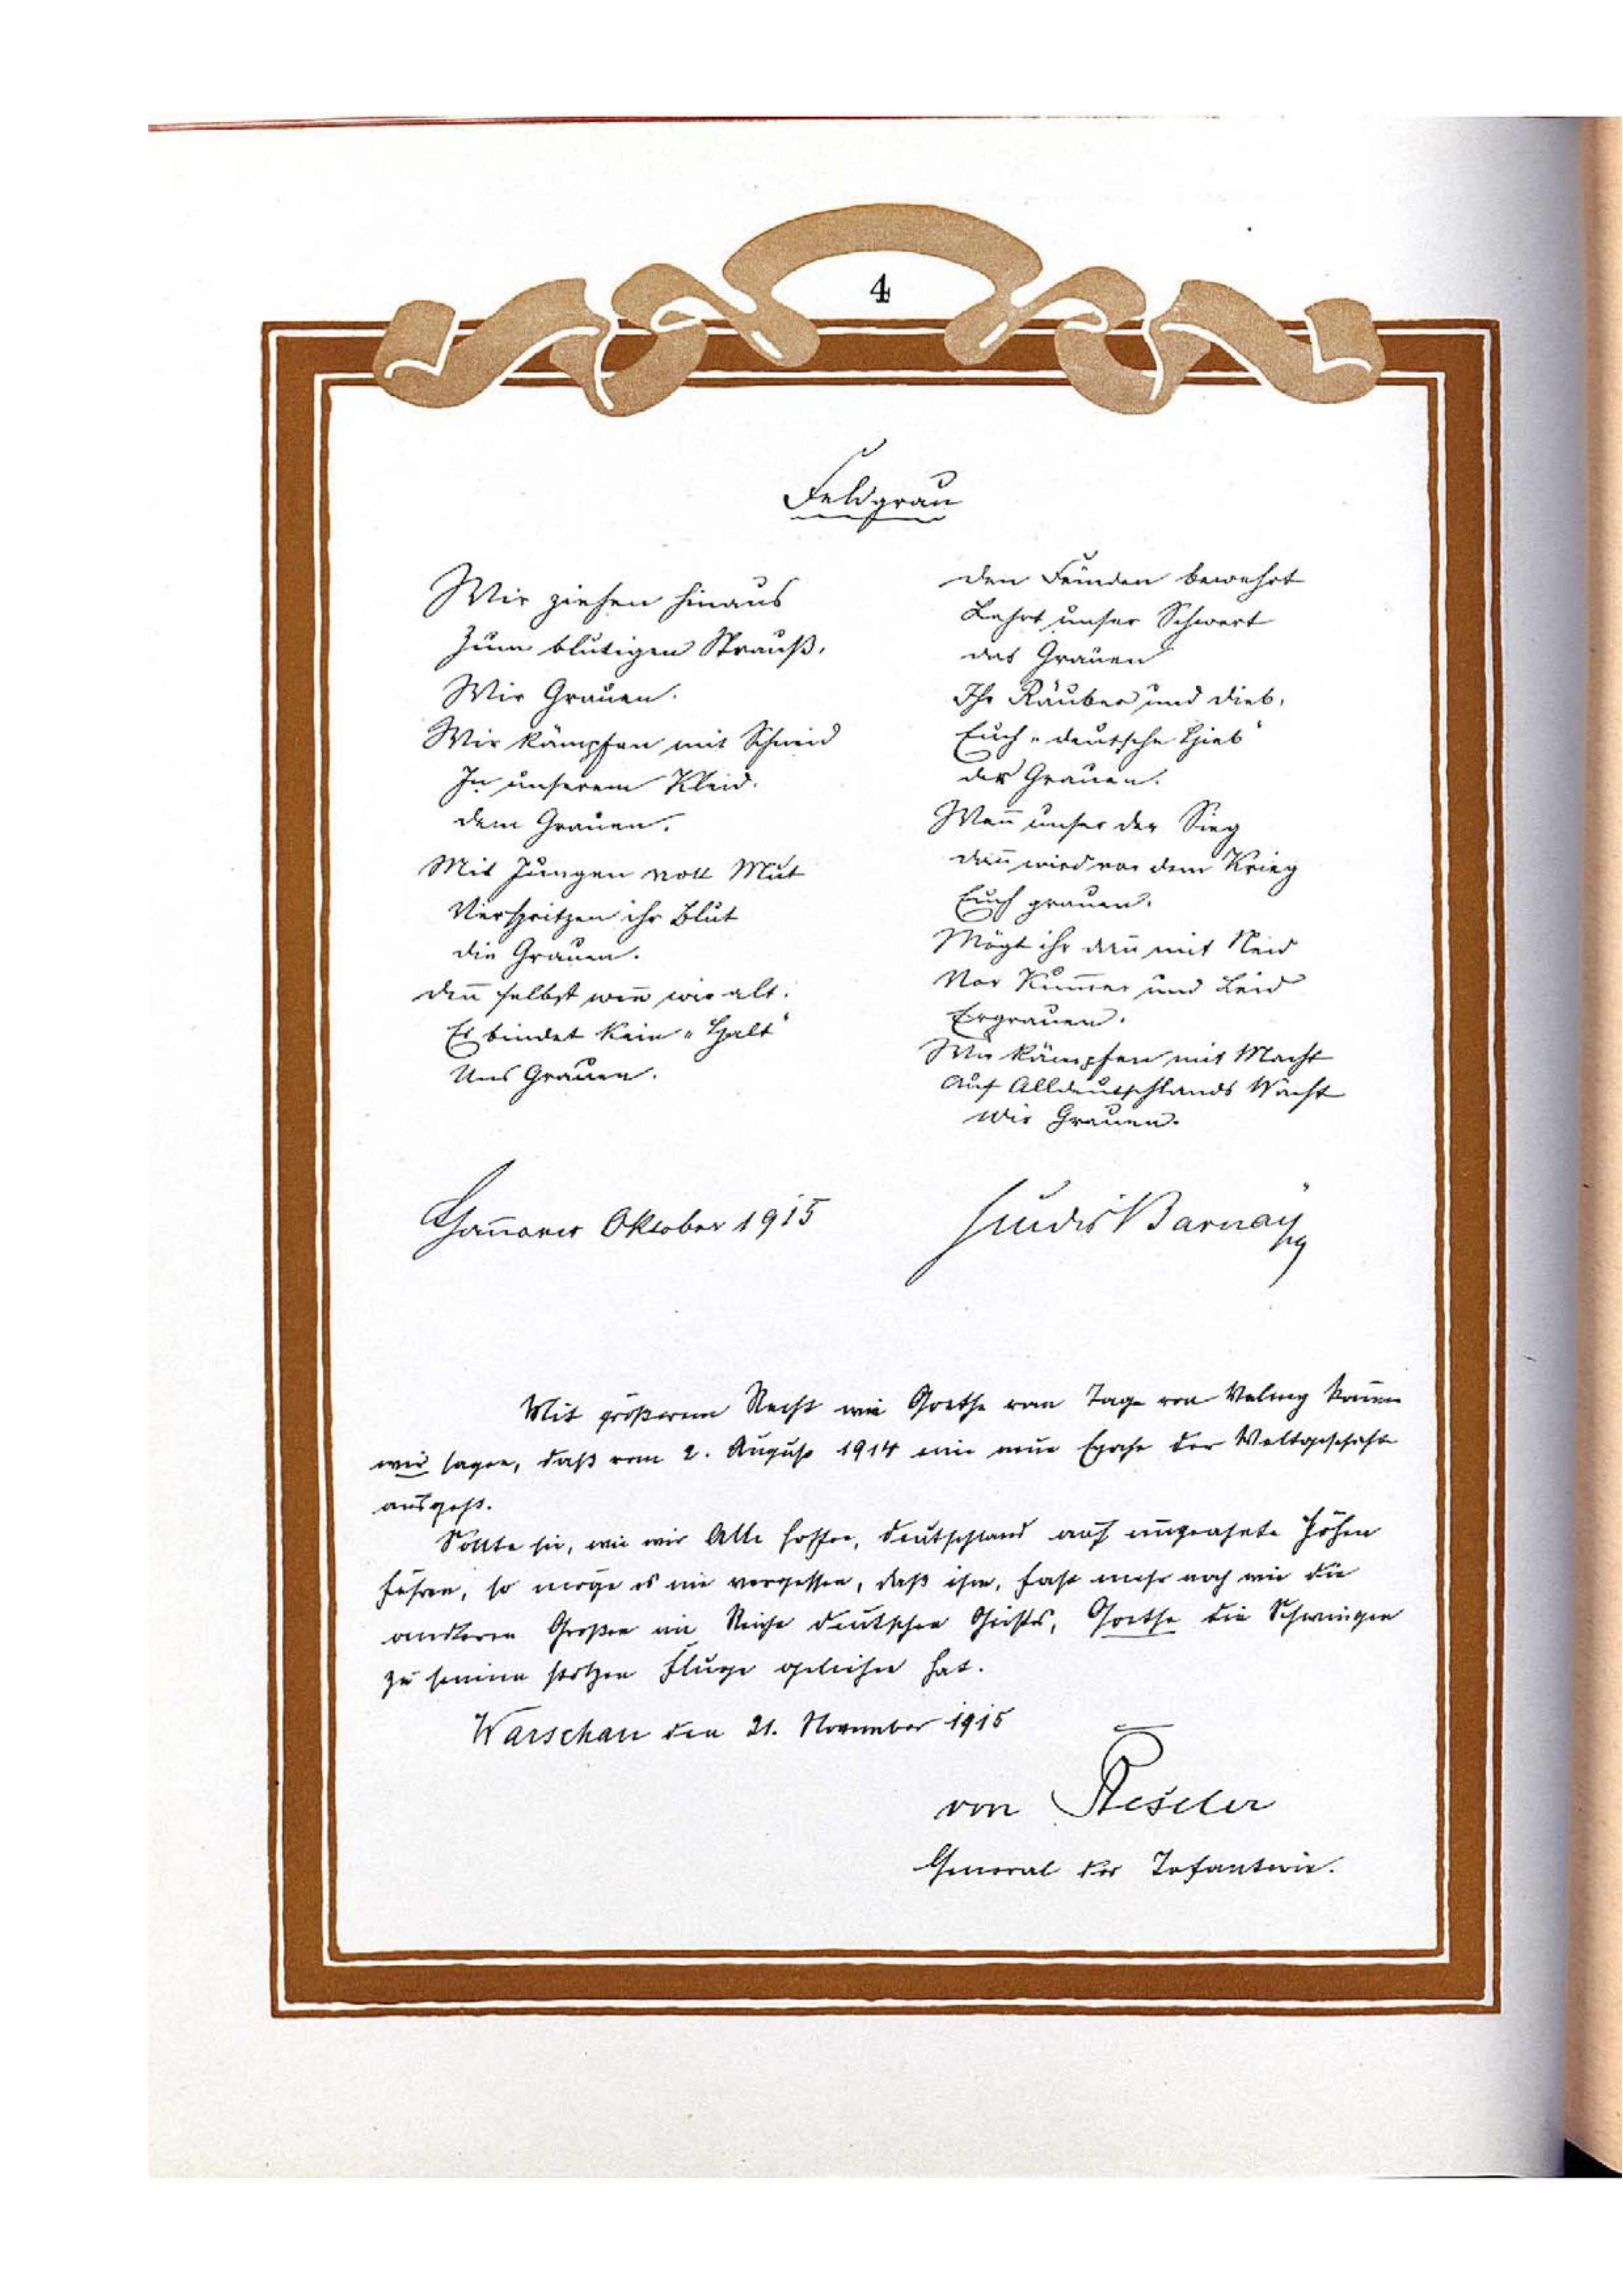 4
Feldgrau
Wir ziehen hinaus
Zum blutigen Strauß,
Wir Grauen.
Wir kämpfen mit Schneid
In unserem Kleid.
dem Grauen.
Mit Jungen voll Mut
Verspritzen ihr Blut
die Grauen.
den̄ selbst wen̄ wir alt.
Es bindet kein „Halt“
Uns Grauen.
den Feinden bewehrt
Lehrt unser Schwert
das Grauen
Ihr Räuber und Dieb,
Euch „deutsche Hieb“
der Grauen.
Wen̄ unser der Sieg
dan̄ wird vor dem Krieg
Euch grauen.
Mögt ihr dan̄ mit Neid
Vor Kum̄er und Leid
Ergrauen.
Wir kämpfen mit Macht
Auf Alldeutschlands Wacht
Wir Grauen.
Han̄over Oktober 1915
Ludwig Barnay
Mit größerem Recht wie Goethe vom Tage von Valmy kön̄en
wir sagen, daß vom 2. August 1914 eine neue Epoche der Weltgeschichte
ausgeht.
Sollte sie, wie wir Alle hoffen, Deutschland auf ungeahnte Höhen
führen, so möge es nie vergessen, daß ihm, fast mehr noch wie die
anderen Großen im Reiche deutschen Geistes, Goethe die Schwingen
zu seinem stolzen Fluge geliehen hat.
Warschau den 21. November 1915
von Beseler
General der Infanterie.